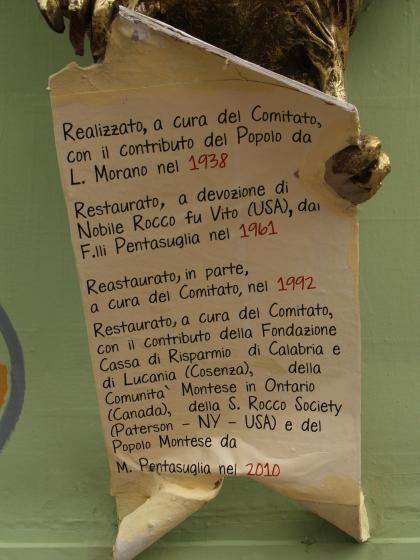 Realizzato, a cura del Comitato,
con il contributo del Popolo da
L. Morano nel 1938
Restaurato, a devozione di
Nobile Rocco fu Vito (USA), dai
F.lli Pentasuglia nel 1961
Reastaurato, in parte,
a cura del Comitato, nel 1992
Restaurato, a cura del Comitato,
con il contributo della Fondazione
Cassa di Risparmio di Calabria e
di Lucania (Cosenza), della
Comunita` Montese in Ontario
(Canada), della S. Rocco Society
(Paterson - NY - USA) e del
Popolo Montese da
M. Pentasuglia nel 2010